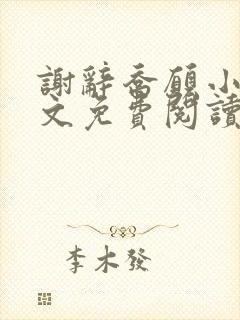 謝辭喬願小
文免費閱讀
李木發